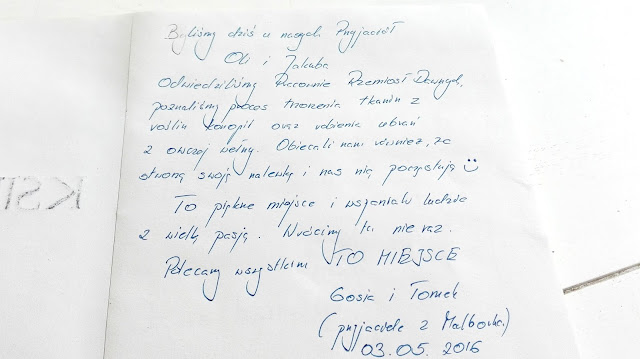 Byliśmy dziś u naszych Przyjaciół
Oli i Jakuba
Odwiedziliśmy Pracownie Rzemiosł Dawnych,
poznaliśmy proces tworzenia tkanin z
roślin konopii oraz robienia ubrań
z owczej wełny. Obiecali nam również, że
otworzą swoją nalewkę i nas nią poczęstują
To piękne miejsce i wspaniali ludzie
z wielką pasją. Wrócimy tu nie raz.
Polecamy wszystkim TO MIEJSCE
Gosia i Tomek
(przyjaciele z Malborka)
03.05.2016